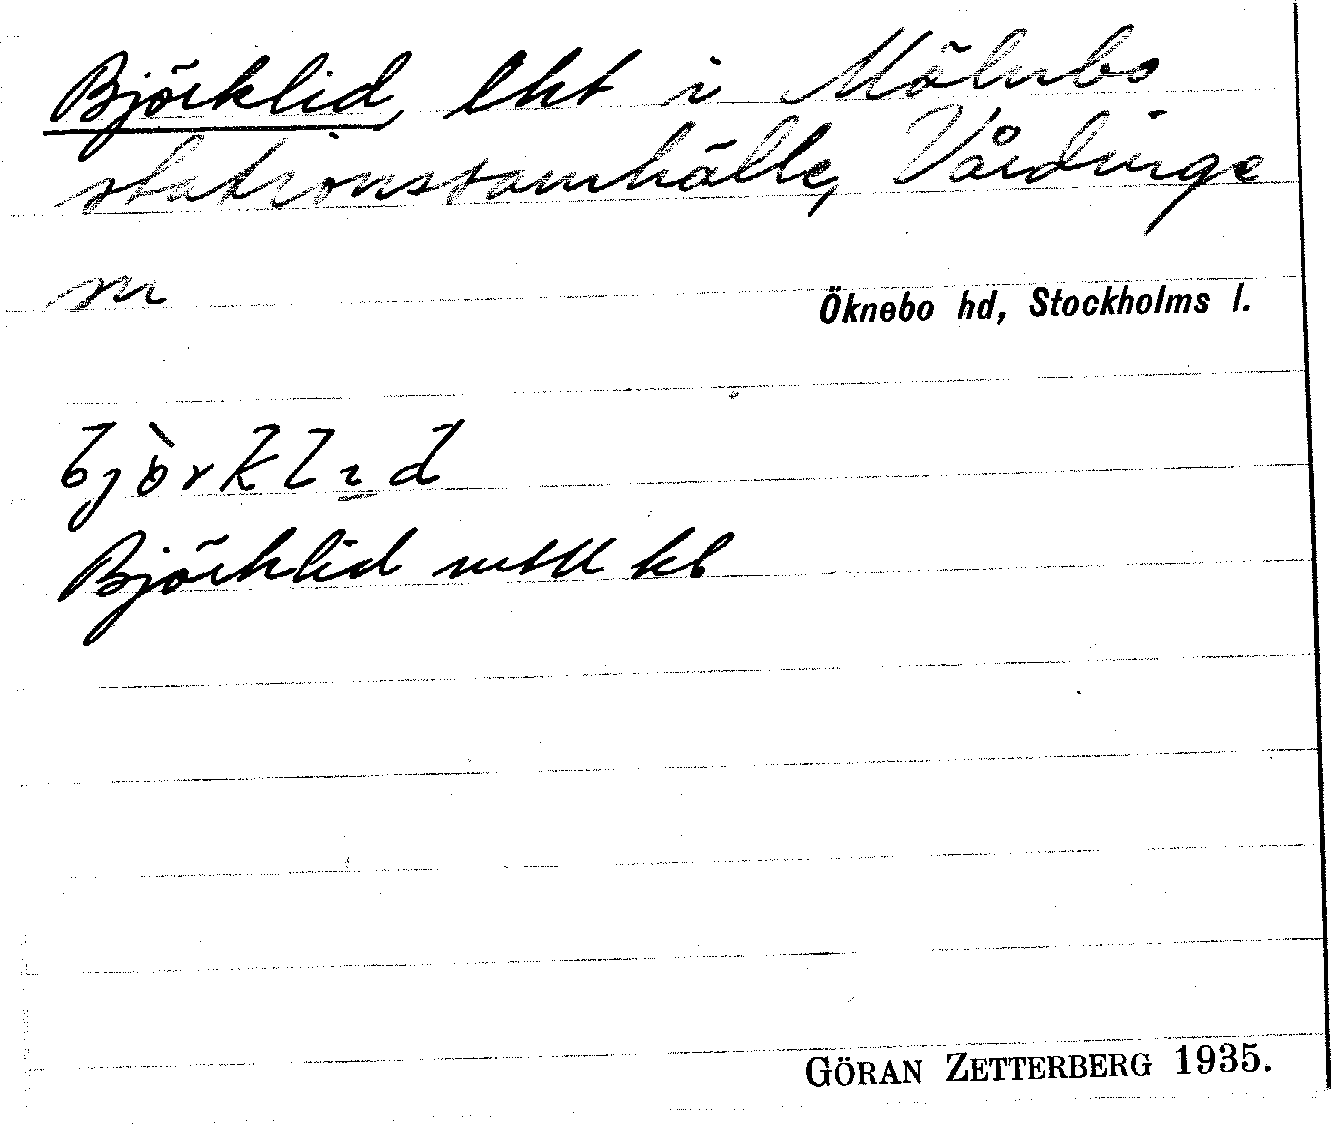 Björklid, lht i Mölnbo
stationssamhälle, Vårdinge
sn
Öknebo hd, Stockholms l.
bjòrklid
Björklid kb
GÖRAN ZETTERBERG 1935.